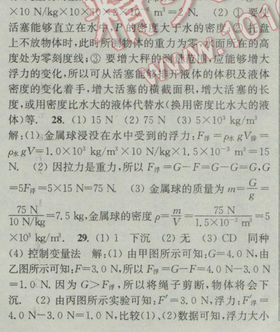 ×10 N/kg×10×10⁻⁴ m²=5 N. (2) ①要使
活塞能够直立在水中,P的密度大于水的密度;②
上不放物体时,此时所测物体的重力为零,水面所在的高
度处为零刻度线;③要增大秤的称量,应能够增大
浮力的变化,所以可从活塞能排开液体的体积及液体
密度的变化着手,增大活塞的横截面积,增大活塞的长
度,或用密度比水大的液体代替水(换用密度比水大的液
体)等. 28. (1) 15 N (2) 75 N (3) 5×10³ kg/m³
解:(1)金属球浸没在水中受到的浮力:F浮=ρ水gV排=
ρ水gV=1.0×10³ kg/m³×10 N/kg×1.5×10⁻³ m³=15
N. (2) 因拉力是重力,所以 F浮=G-F=G-G=G,G
=5F浮=5×15 N=75 N. (3) 金属球的质量为 m=G/g=
75 N/10 N/kg=7.5 kg,金属球的密度 ρ=m/V=75 N/1.5×10⁻³ m³=5
×10³ kg/m³. 29. (1) 1 下沉 (2) 无 (3) CD 同种
(4) 控制变量法 解:(1) 由甲图所示可知:G=4.0 N,由
乙图所示可知:F=3.0 N,所以 F浮=G-F=4.0 N-3.0 N
=1.0 N. 因为 G>F浮,所以将绳子剪断,物体将会下
沉. (2) 由丙图所示实验可知:F′=3.0 N,浮力:F浮′=
4.0 N-3.0 N=1.0 N,比较(1)、(2)数据可知,浮力大小